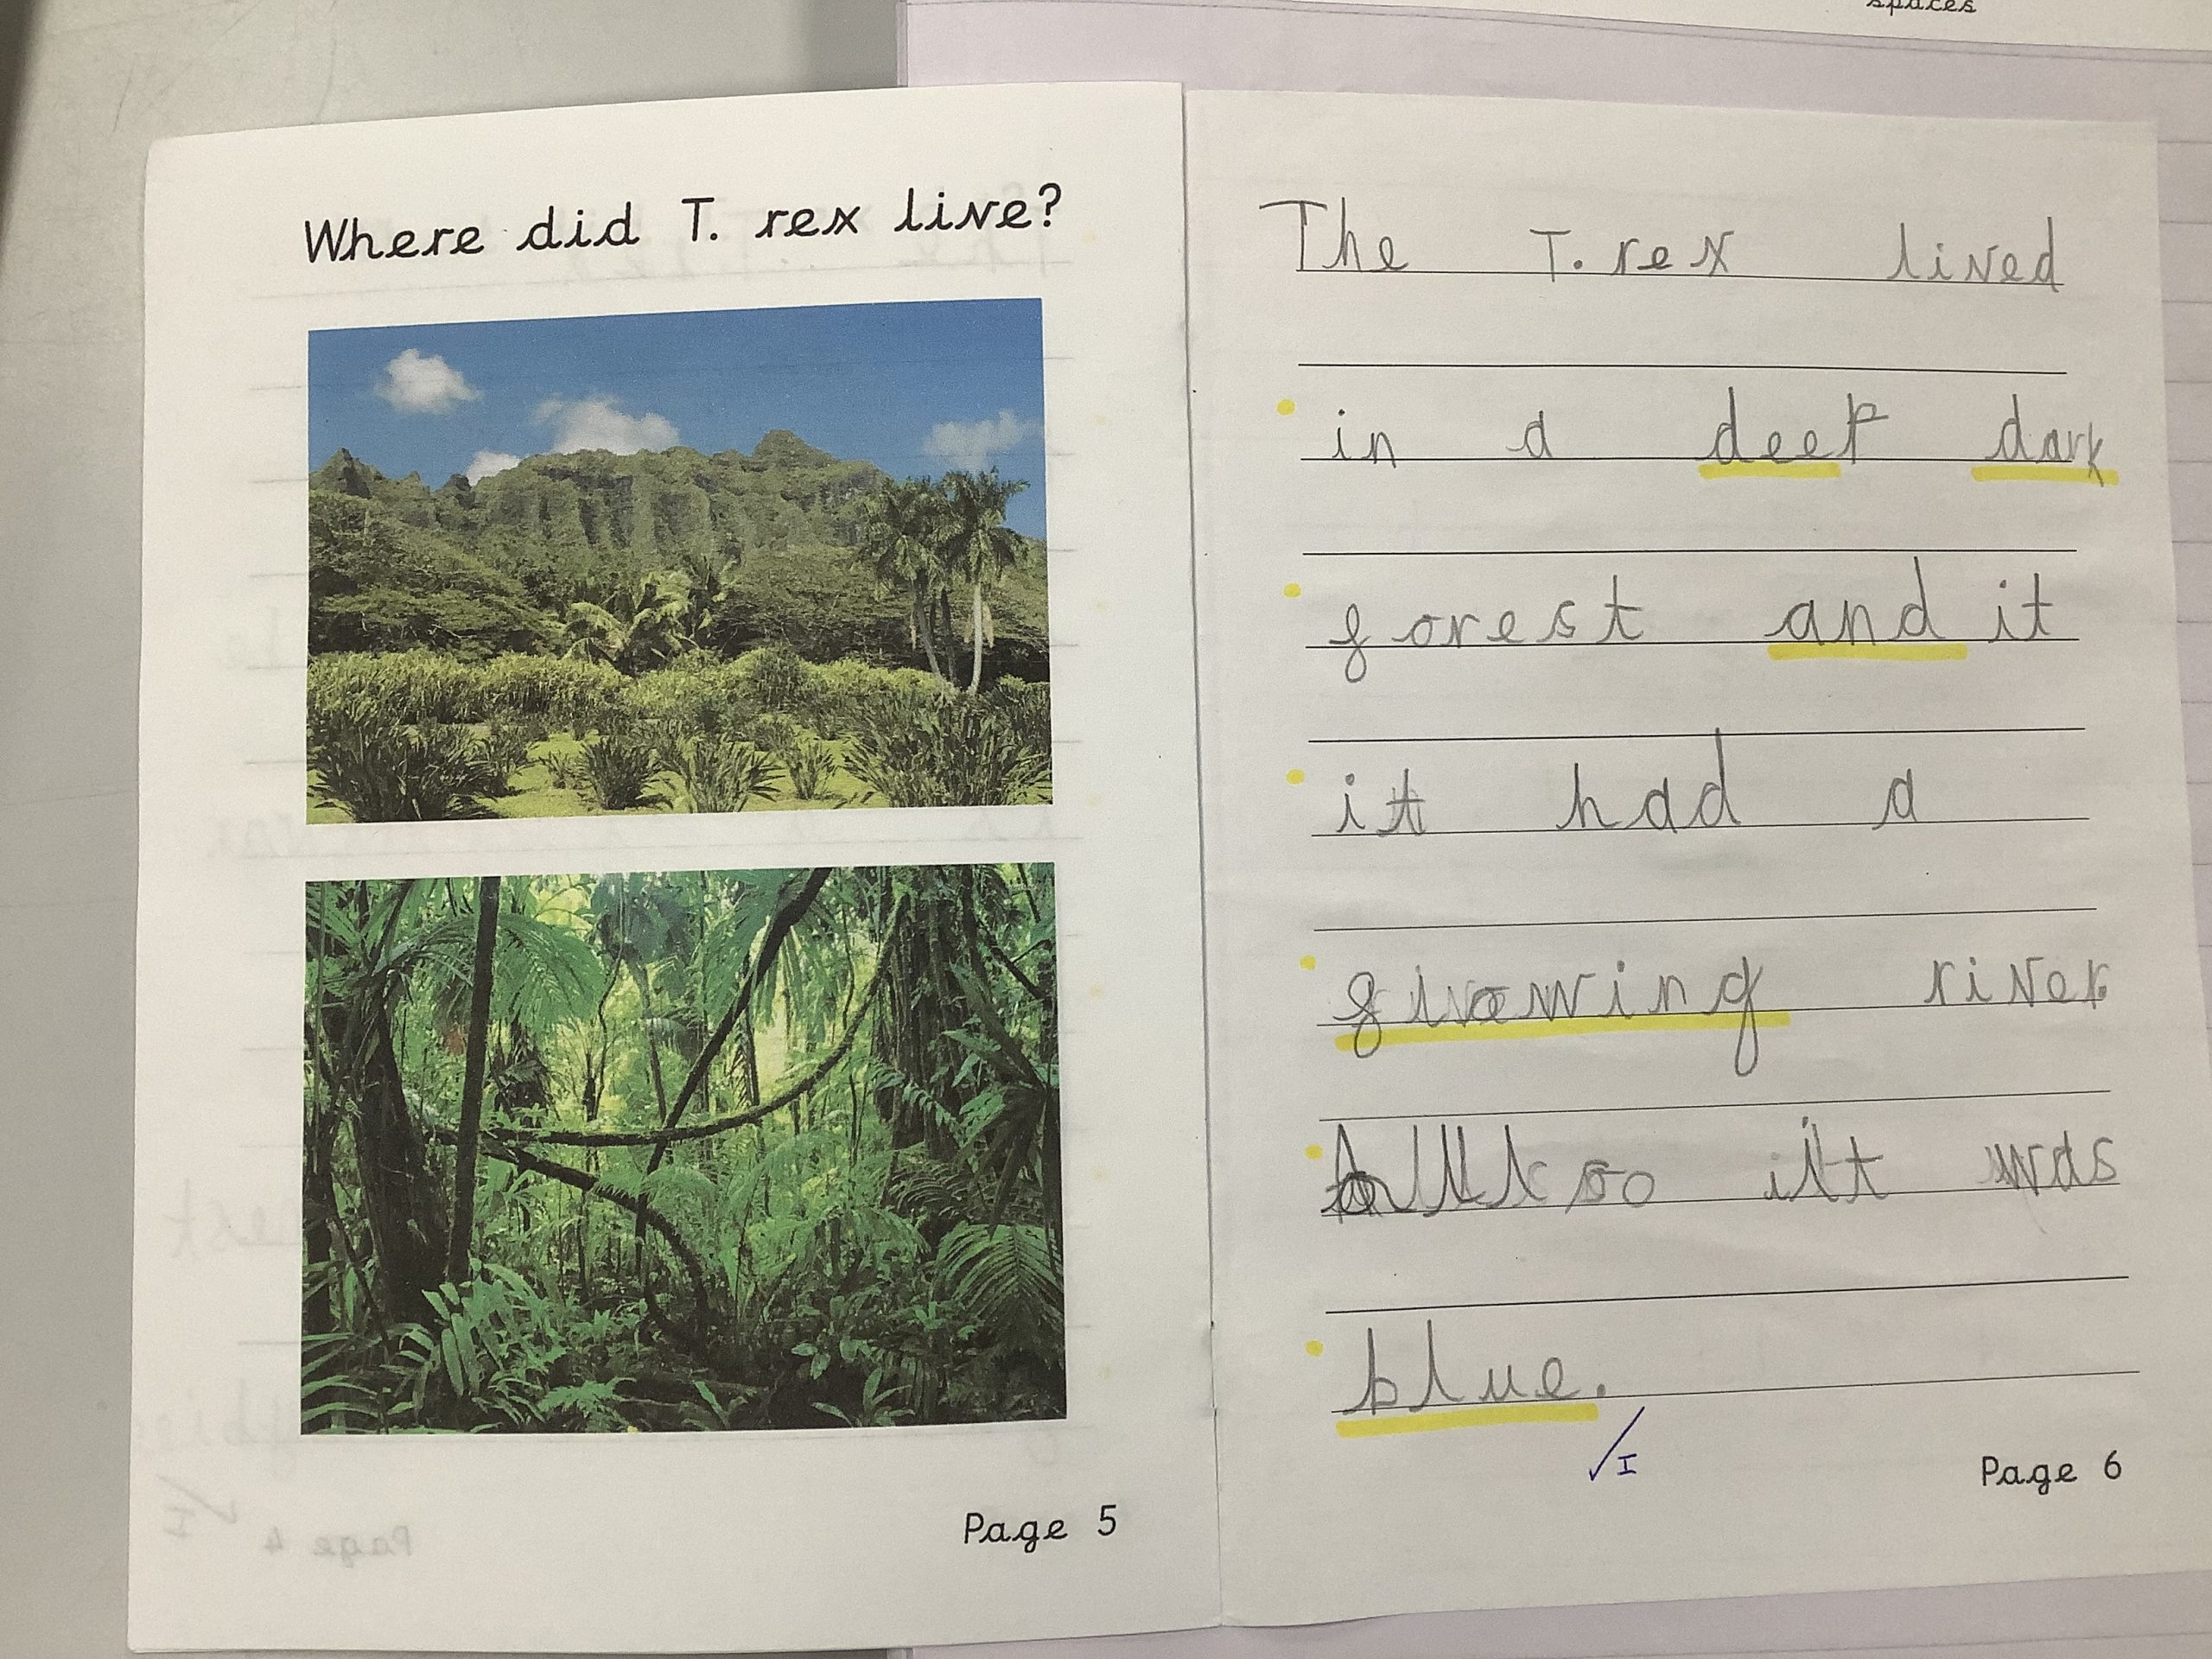 spaces
Where did T. rex live?
Page 5
The T. rex lived
in a deep dark
forest and it
it had a
river.
it was
blue.
I
Page 6
Page 4